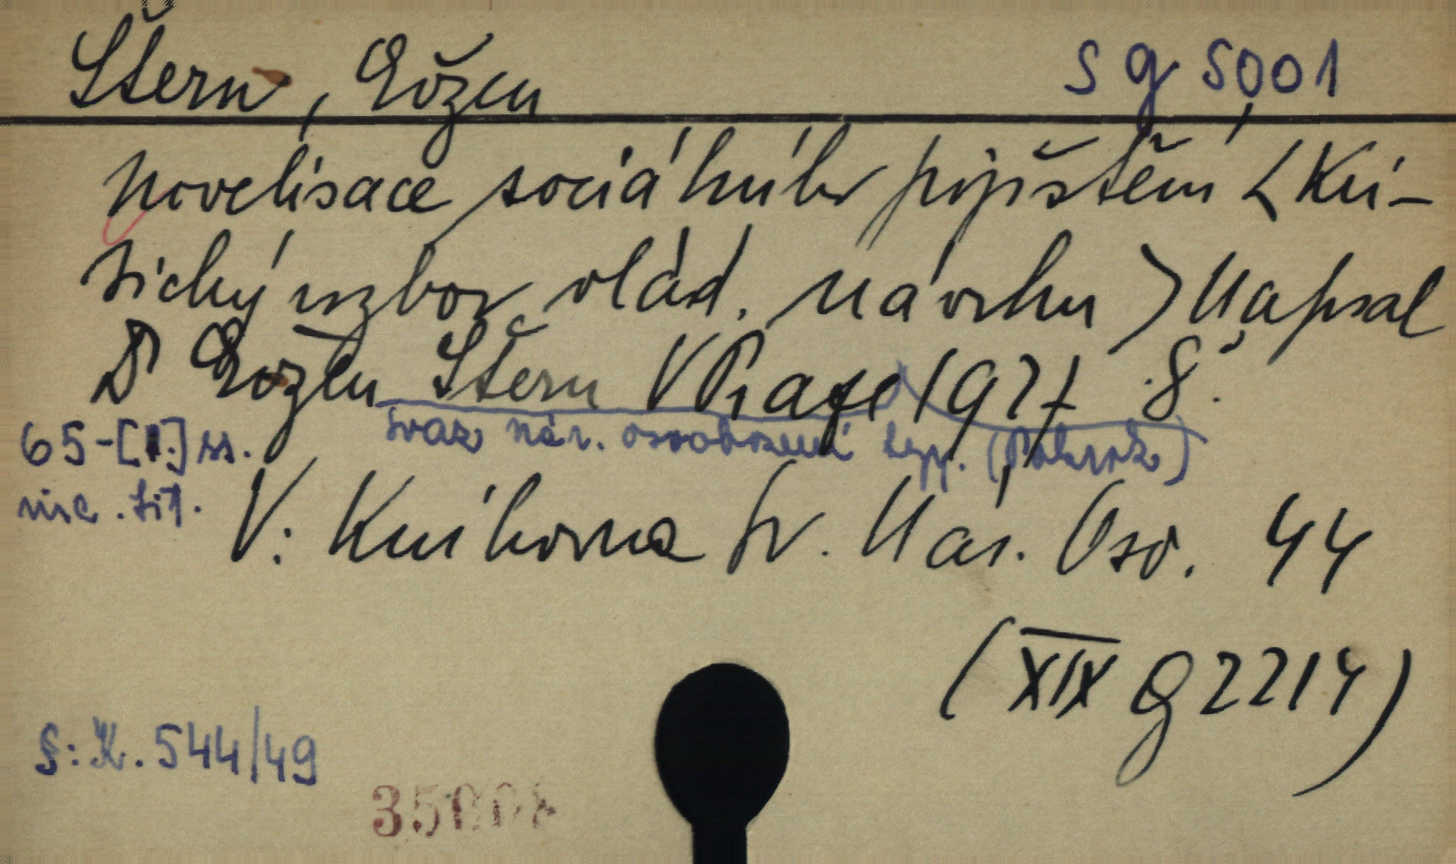 Štern, Evžen
Sg 5001
Novelisace sociálního pojištění <Kri-
tický rozbor vlád. návrhu> Napsal
Dr Evžen Štern V Praze 1927 8°.
65-[1.] ss.
Svaz nár. osvobození typ. (Pokrok)
nic. tit.
V: Knihovna Sv. Nár. Osv. 44
(XIX G 2214)
§: K. 544/49